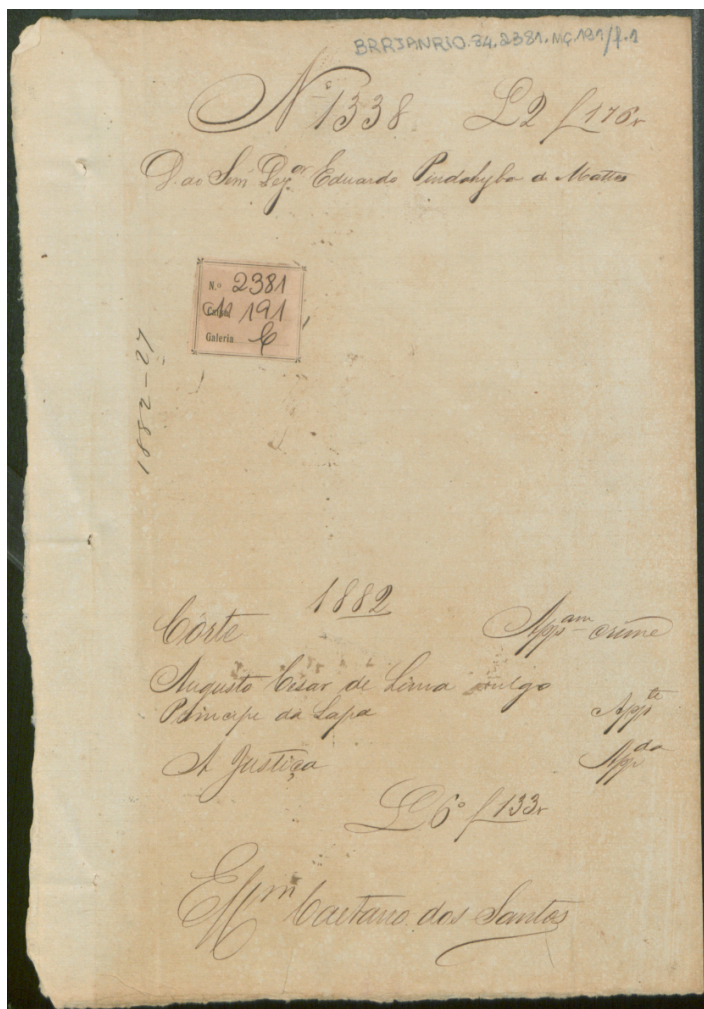 BRRJANRIO.84.2381.MÇ.191/f.1
Nº 1338 L2 f 176v
D. ao Snr. Dezor Eduardo Pindahyba de Mattos
N.º 2381
191
Galeria C
1882-27
1882
Côrte Appam crime
Augusto Cesar de Lima vulgo
Principe da Lapa Appte
A Justiça Appda
L 6º f 133v
Caetano dos Santos